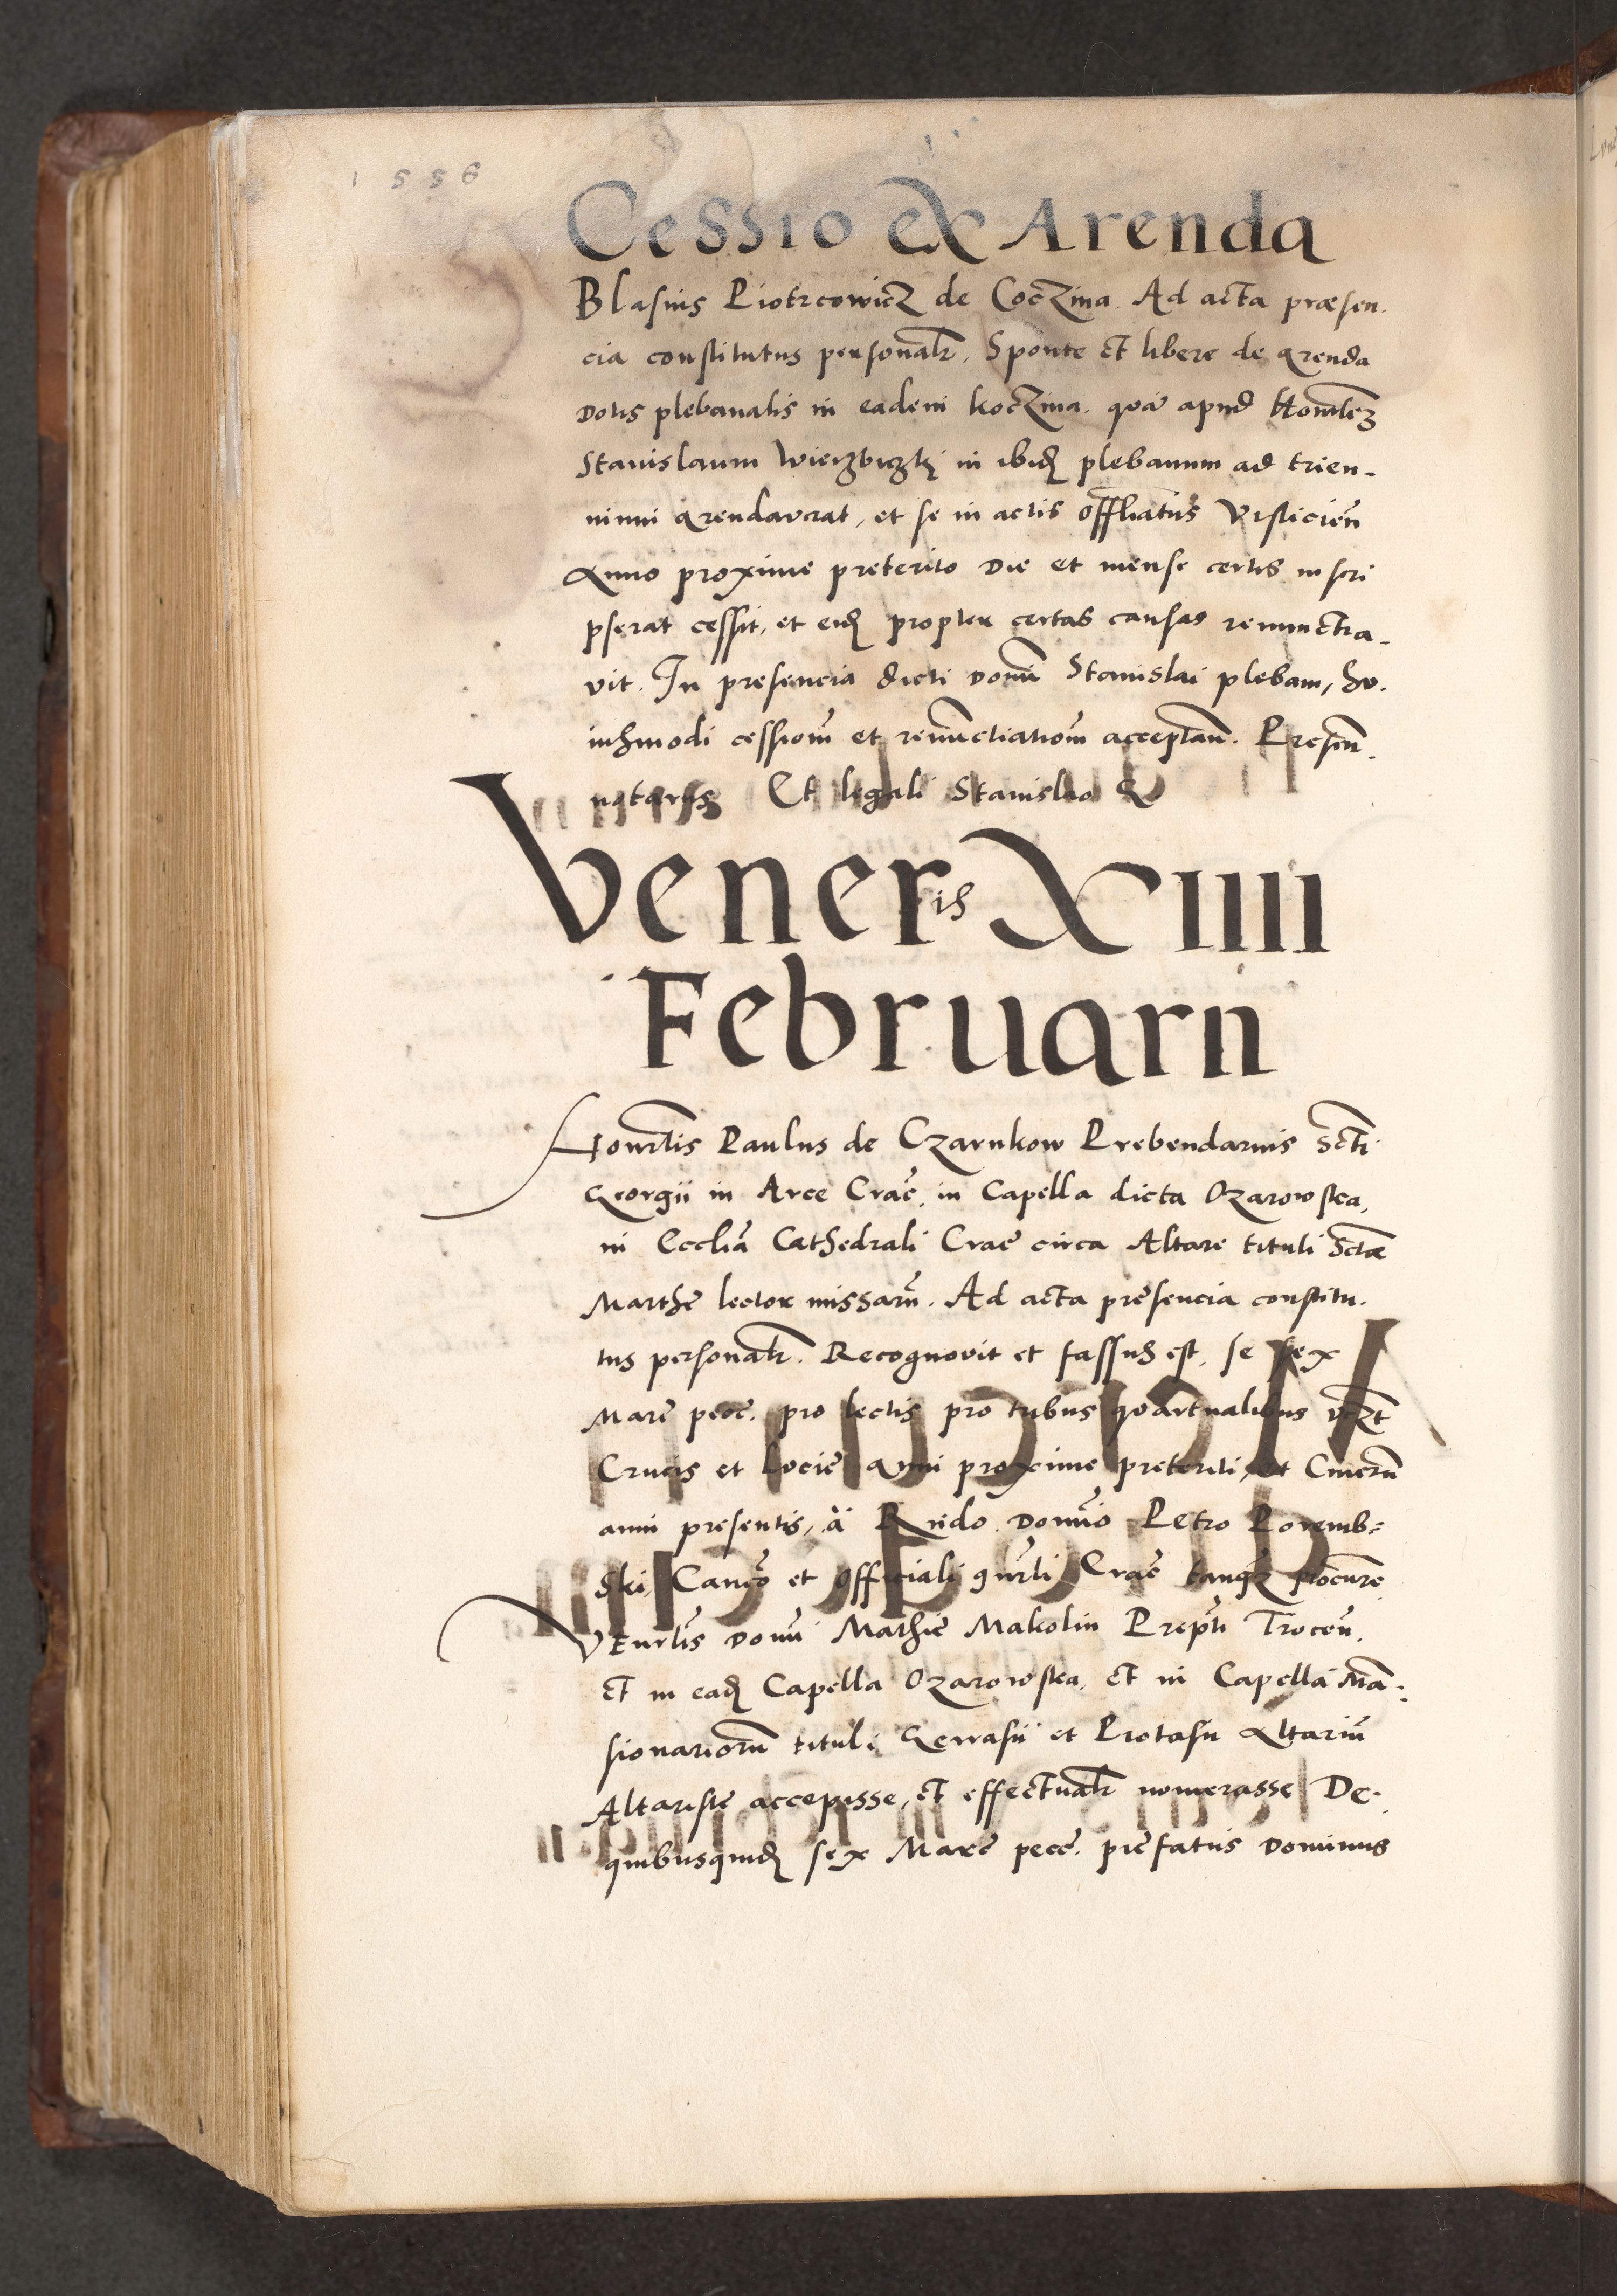 1556
Cessio ex Arenda
Blasius Piotrcowicz de Coczina. Ad acta præsen.
cia constitutus personalr. Sponte et libere de arenda
dotis plebanalis in eadem koczina. quā apud Honōlez
Stanislaum in ibid plebanum ad trien-
nium arendaverat, et se in actis offliatus Visliciēn
Anno proxime preterito die et mense certis inscri
pserat cessit, et eid propter certas causas renunctia-
vit. In presencia dicti domī Stanislai plebani, hu.
iusmodi cessiōm et renūctiatiōm acceptan. Presen.
notariis Et legali Stanislao &
Veneris XIIII
Februarii
Honrlis Paulus de Czarnkow Prebendarius Scti
Georgii in Arce Crac̄. in Capella dicta Ozarowska,
in Eccliā Cathedrali Crac̄ circa Altare tituli Sctæ
Marthe lector missarū. Ad acta presencia constitu.
tus personalr. Recognovit et fassus est, se sex
Marc̄ pecc̄. pro lectis pro tribus quartualibus vzt
Crucis et Lucie anni proxime preteriti, et Cinerū
anni presentis, à Rndo. Domīo Petro Poremb=
ski, Canco et Officiali gnrli Crac̄ tanq̄ procure
Venrlis Domī Mathie Makolin Prepti Trocen.
Et in ead Capella Ozarowska, et in Capella Man.
sionariorū tituli Gervasii et Protasii Altariū
Altariste accepisse, et effectualr numerasse De.
quibusquid sex Marc̄ pecc̄. prefatus Dominus